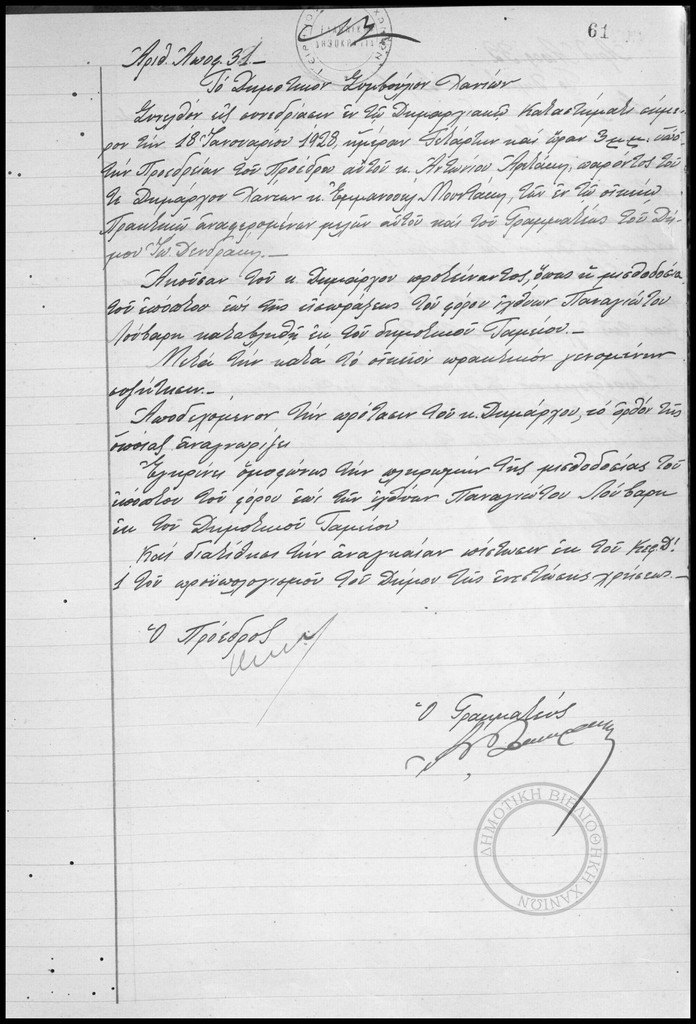 61
Ἀριθ. Ἀποφ. 31.-
Τό Δημοτικόν Συμβούλιον Χανίων
Συνελθόν εἰς συνεδρίασιν ἐν τῷ Δημαρχιακῷ Καταστήματι σήμε-
ρον τήν 18 Ἰανουαρίου 1928, ἡμέραν Τετάρτην καί ὥραν 3 μ.μ. ὑπό
τήν Προεδρείαν τοῦ Προέδρου αὐτοῦ κ. Ἀντωνίου παρόντος τοῦ
τε Δημάρχου Χανίων κ. Ἐμμανουήλ Μουντάκη, τῶν ἐν τῷ οἰκείῳ
Πρακτικῷ ἀναφερομένων μελῶν αὐτοῦ καί τοῦ Γραμματέως τοῦ Δή-
μου Ἰω. Δενδράκη.-
Ἀκοῦσαν τοῦ κ. Δημάρχου προτείναντος, ὅπως ἡ μισθοδοσία
τοῦ ἐπόπτου ἐπί τῆς εἰσπράξεως τοῦ φόρου ἰχθύων Παναγιώτου
Λούβαρη καταβληθῇ ἐκ τοῦ δημοτικοῦ Ταμείου.-
Μετά τήν κατά τό οἰκεῖον πρακτικόν γενομένην
συζήτησιν.-
Ἀποδεχόμενον τήν πρότασιν τοῦ κ. Δημάρχου, τό ὀρθόν τῆς
ὁποίας ἀναγνωρίζει
Ἐγκρίνει ὁμοφώνως τήν πληρωμήν τῆς μισθοδοσίας τοῦ
ἐπόπτου τοῦ φόρου ἐπί τῶν ἰχθύων Παναγιώτου Λούβαρη
ἐκ τοῦ Δημοτικοῦ Ταμείου
Καί διατίθησι τήν ἀναγκαίαν πίστωσιν ἐκ τοῦ Κεφ. Δ!
1 τοῦ προϋπολογισμοῦ τοῦ Δήμου τῆς ἐνεστώσης χρήσεως.-
Ὁ Πρόεδρος
Ὁ Γραμματεύς
ΔΗΜΟΤΙΚΗ ΒΙΒΛΙΟΘΗΚΗ ΧΑΝΙΩΝ